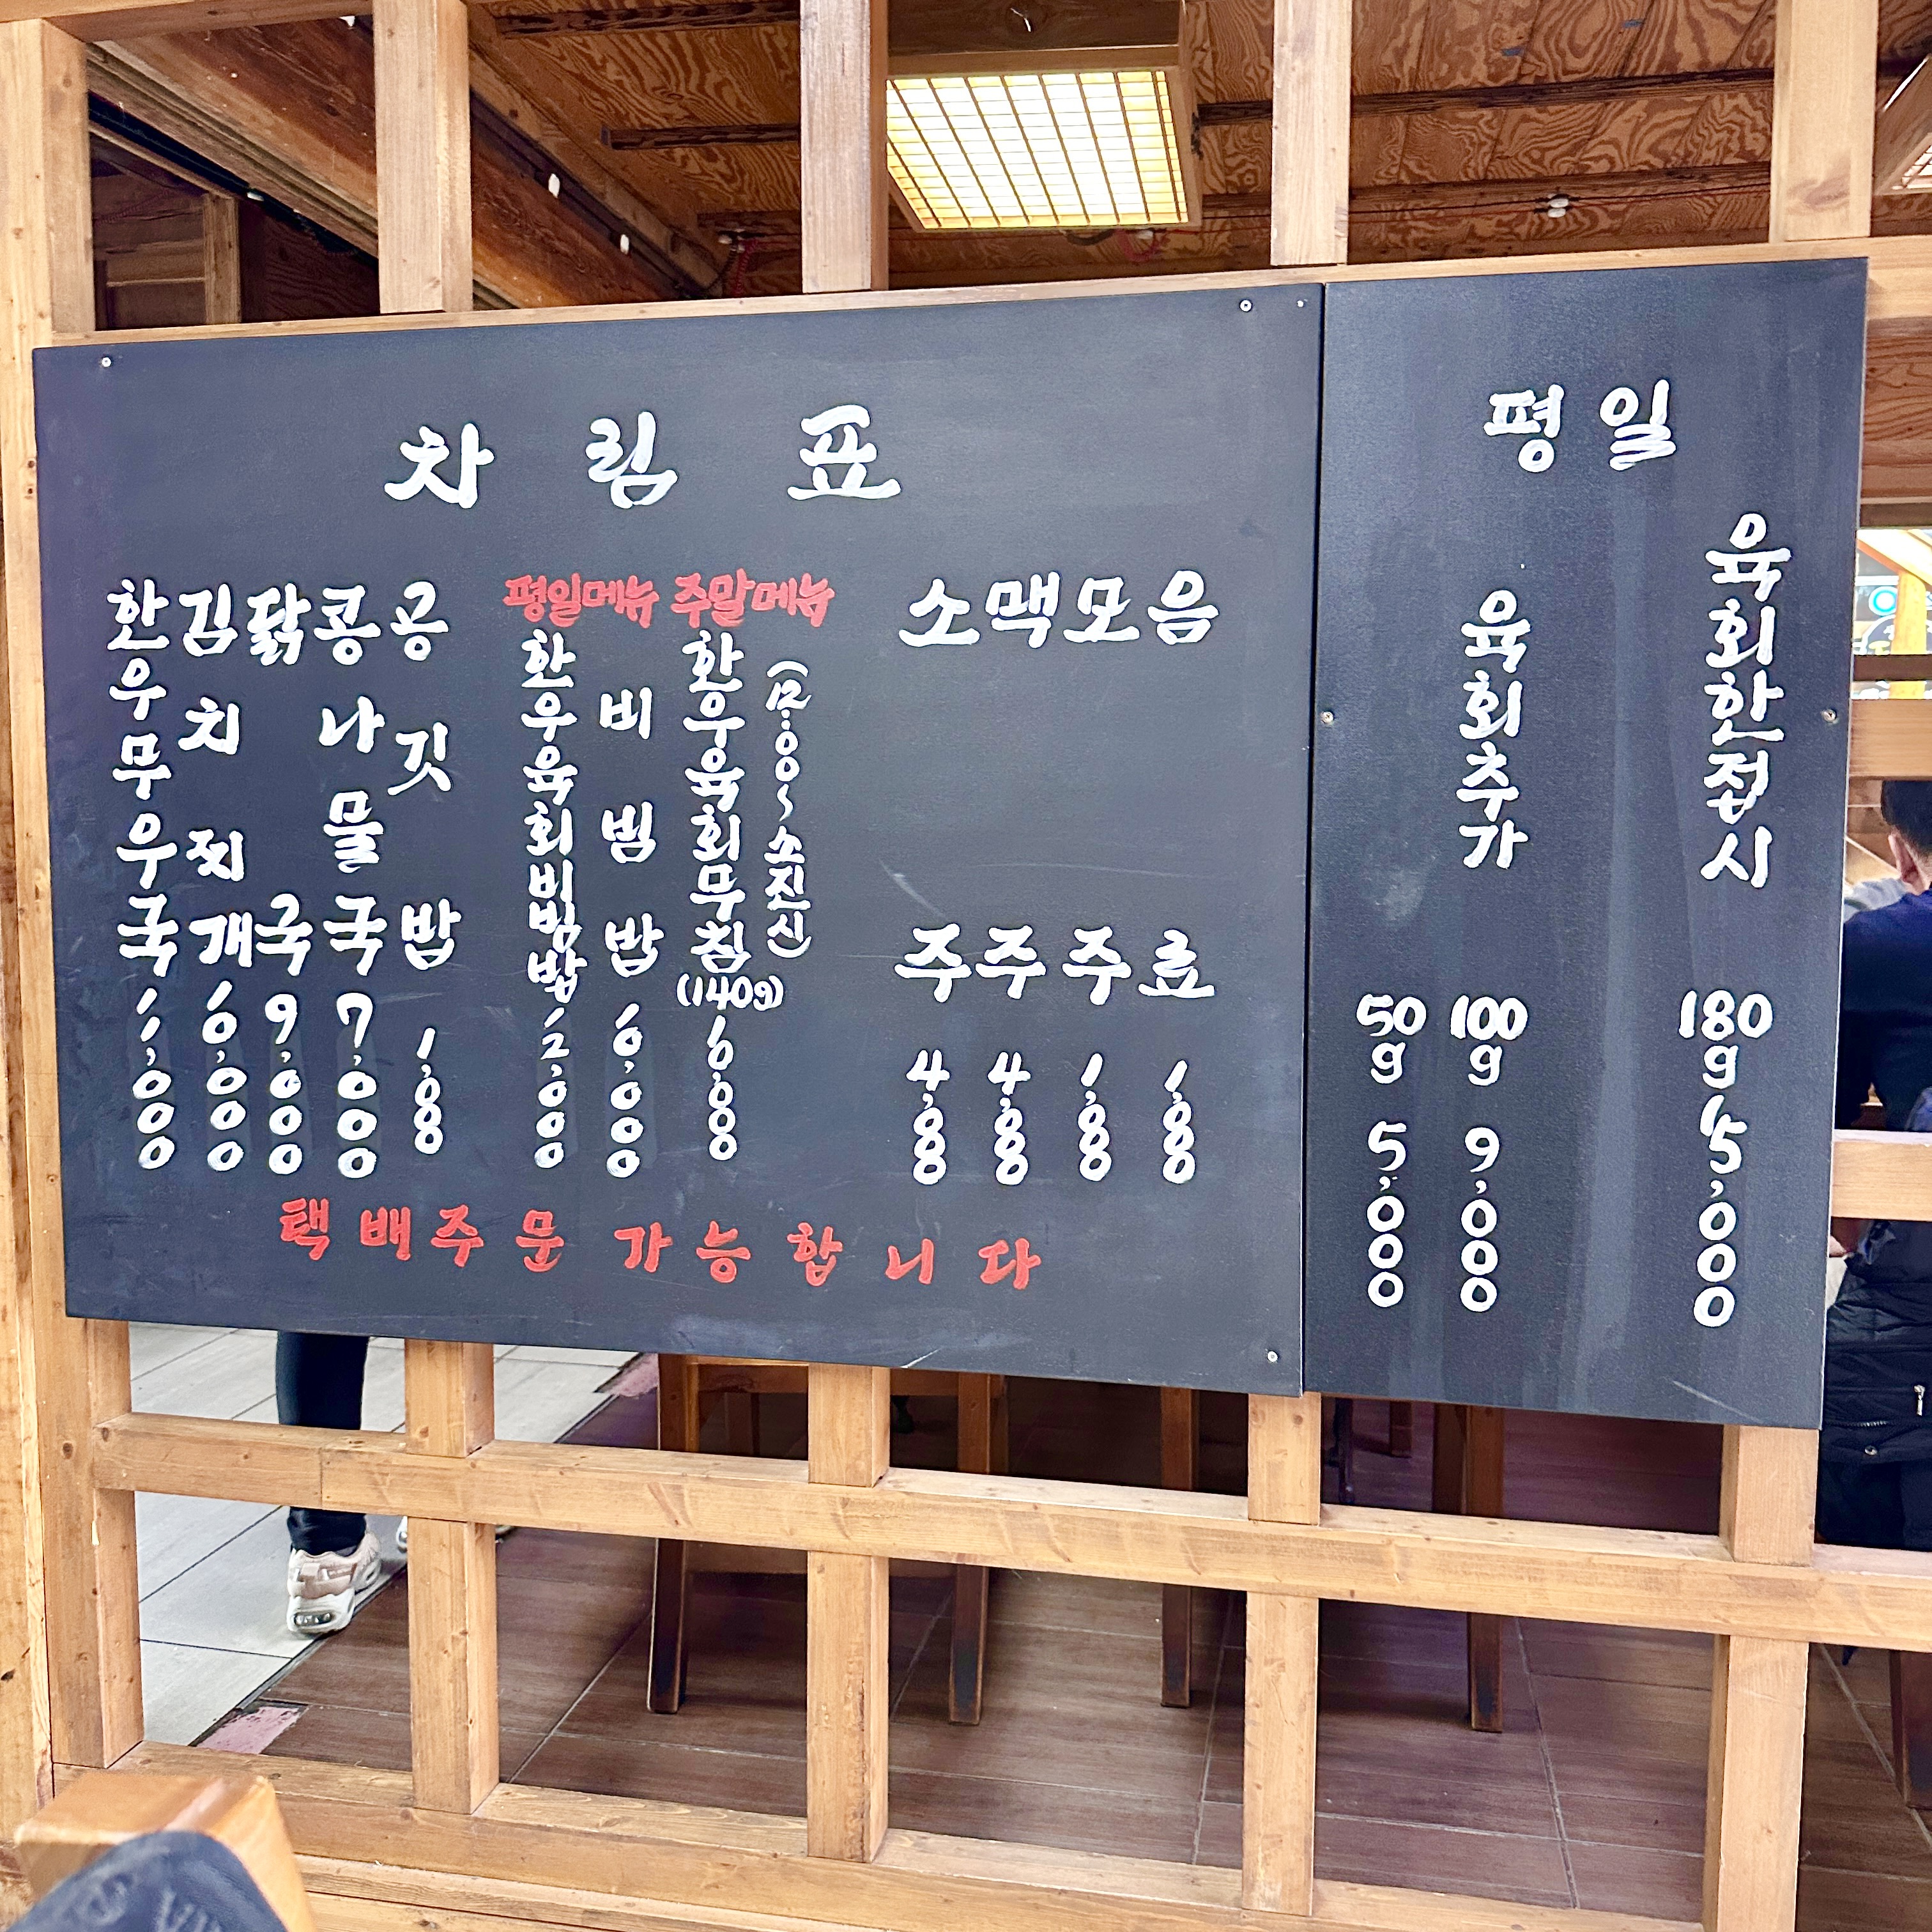 차림표
한우무우국 11,000
김치찌개 6,000
닭국 9,000
콩나물국 7,000
공깃밥 1,000
평일메뉴
한우육회비빔밥 12,000
비빔밥 6,000
주말메뉴
한우육회무침 (140g) 6,000
(12:00~소진시)
소주 4,000
맥주 4,000
모주 1,000
음료 1,000
택배주문가능합니다
평일
육회추가
50g 5,000
100g 9,000
육회한접시
180g 15,000